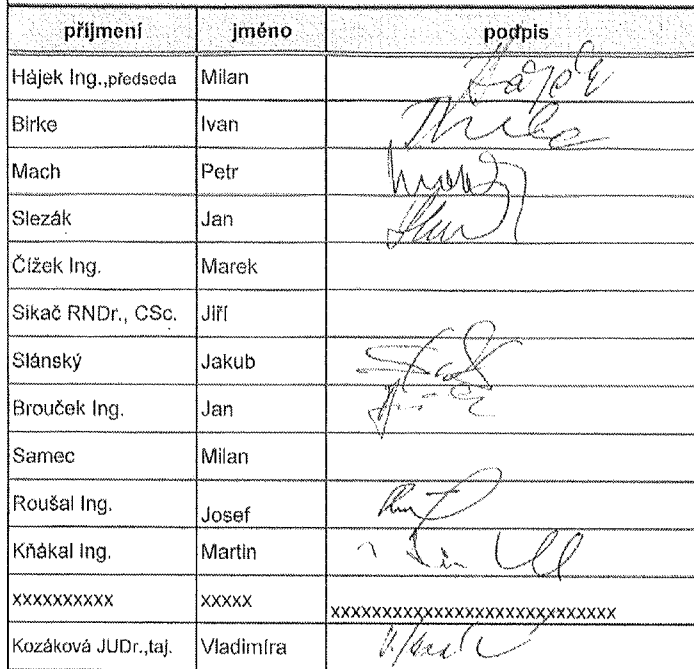 příjmení jméno podpis
Hájek Ing.,předseda Milan Hájek
Birke Ivan
Mach Petr
Slezák Jan
Čížek Ing. Marek
Sikač RNDr., CSc. Jiří
Slánský Jakub
Brouček Ing. Jan
Samec Milan
Roušal Ing. Josef
Kňákal Ing. Martin
xxxxxxxxxx xxxxx xxxxxxxxxxxxxxxxxxxxxxxxxxxx
Kozáková JUDr.,taj. Vladimíra